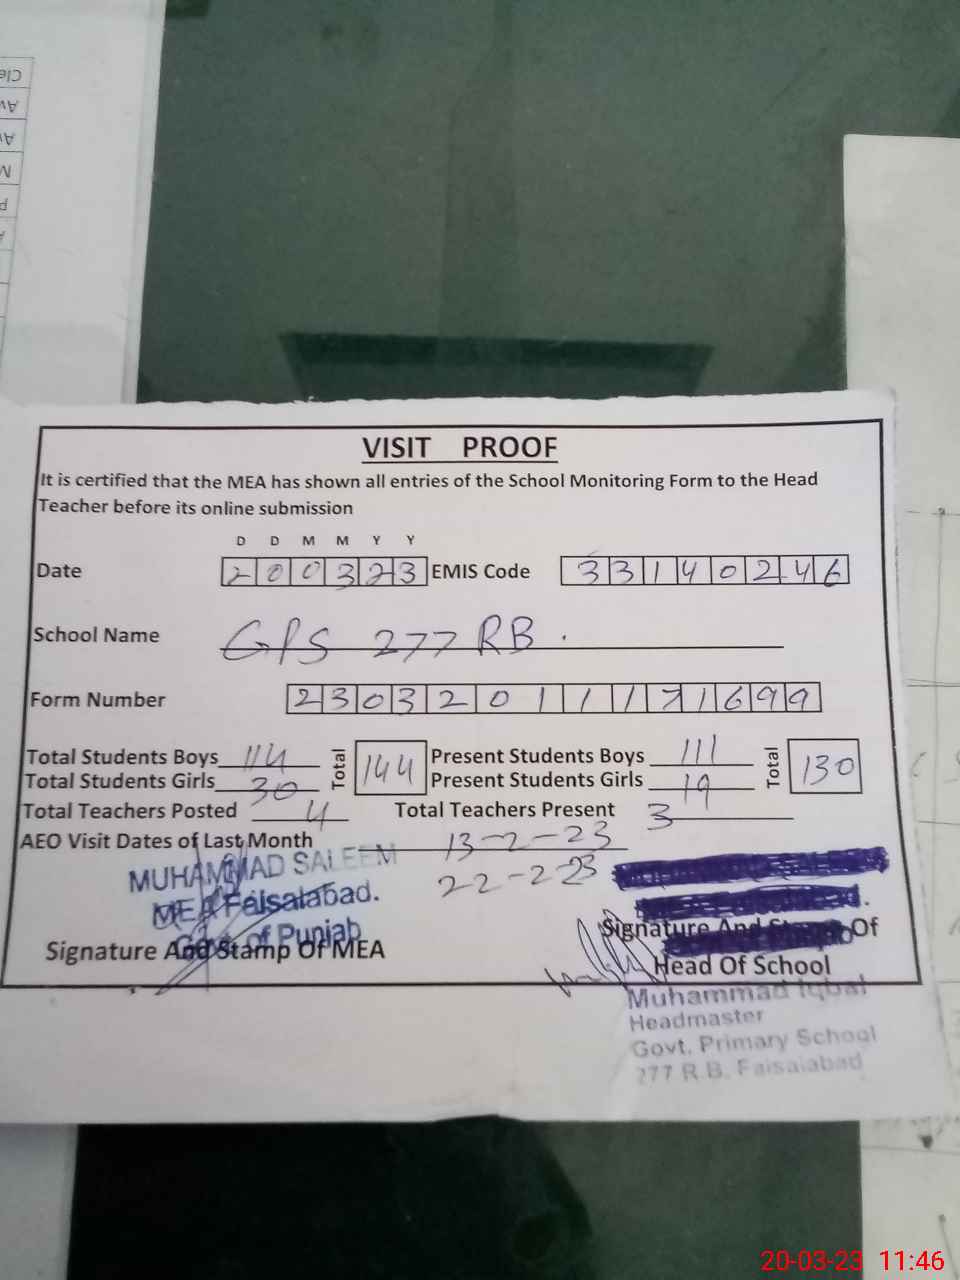 VISIT PROOF
It is certified that the MEA has shown all entries of the School Monitoring Form to the Head
Teacher before its online submission
D D M M Y Y
Date 200323 EMIS Code 33140246
School Name GPS 277 RB .
Form Number 23032011171699
Total Students Boys 114 Total 144 Present Students Boys 111 Total 130
Total Students Girls 30 Present Students Girls 19
Total Teachers Posted 4 Total Teachers Present 3
AEO Visit Dates of Last Month 13-2-23
22-2-23
MUHAMMAD SALEEM
MEA Faisalabad.
Govt. of Punjab
Signature And Stamp Of MEA
Signature And Stamp Of
Head Of School
Muhammad Iqbal
Headmaster
Govt. Primary School
277 R.B. Faisalabad
20-03-23 11:46